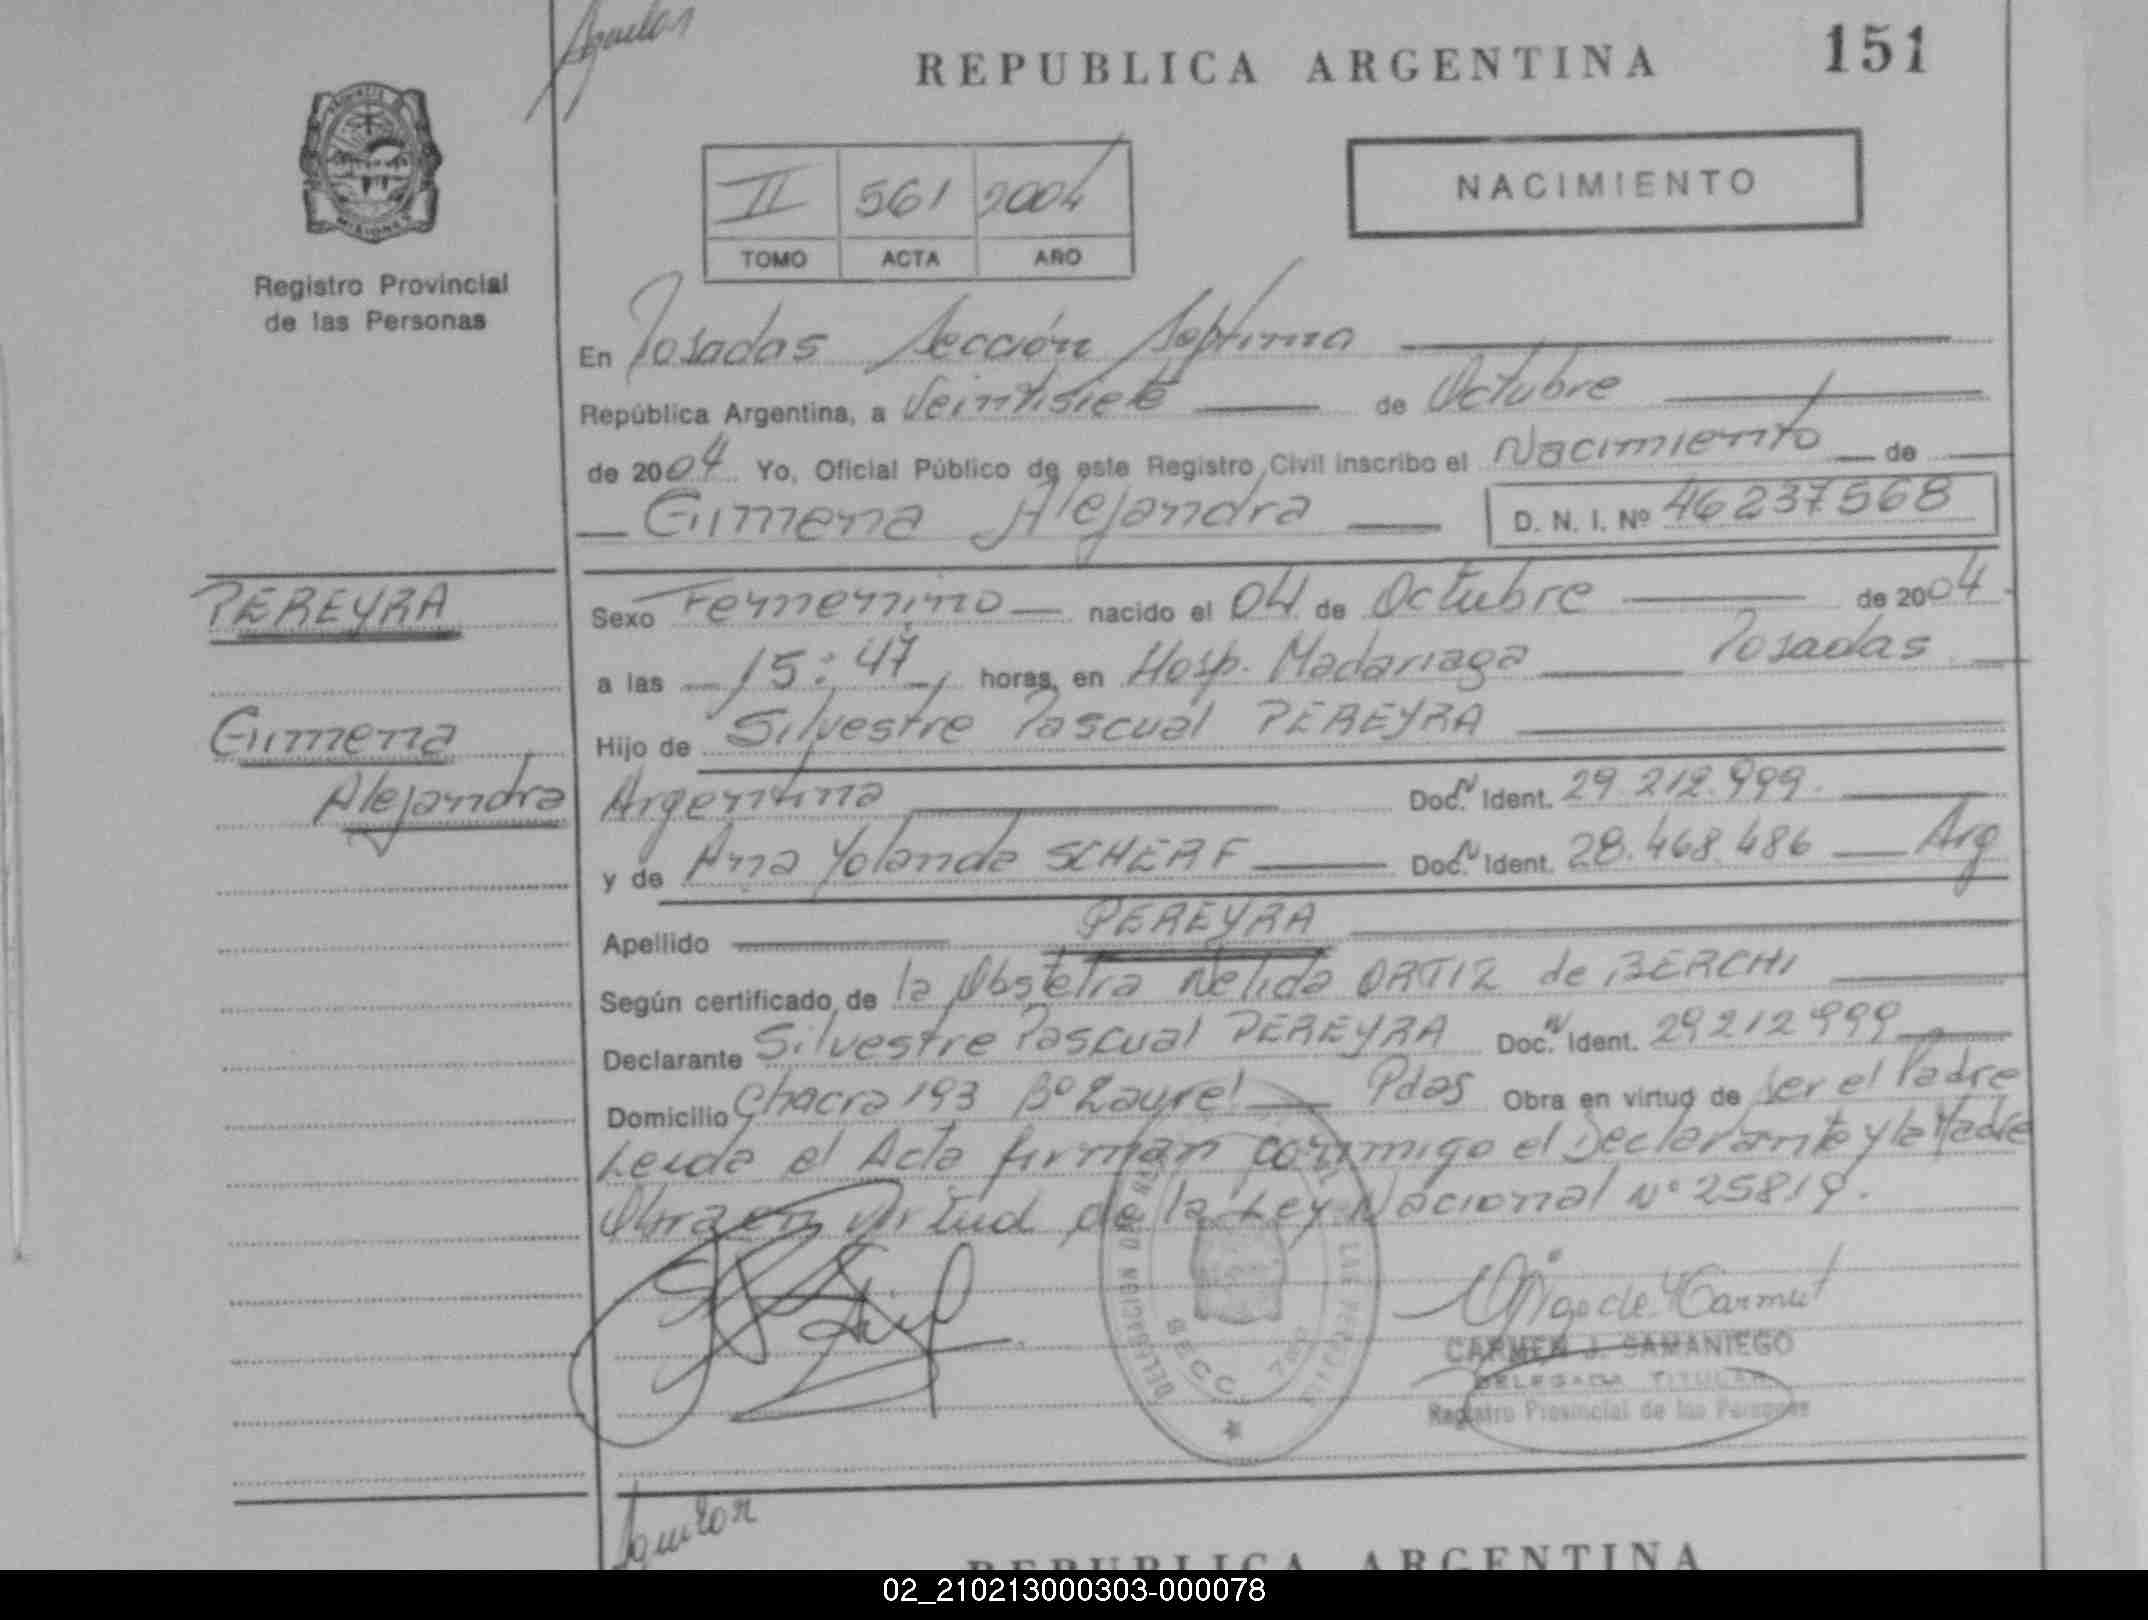 Aguilar
REPUBLICA ARGENTINA
151
PROVINCIA DE
MISIONES
Registro Provincial
de las Personas
II 561 2004
TOMO ACTA AÑO
NACIMIENTO
En Posadas Sección Septima
República Argentina, a Veintisiete de Octubre
de 2004 Yo, Oficial Público de este Registro Civil inscribo el Nacimiento de
Gimena Alejandra D. N. I. Nº 46237568
PEREYRA
Gimena
Alejandra
Sexo Femenino nacido el 04 de Octubre de 2004
a las 15:47 horas, en Hosp. Madariaga Posadas
Hijo de Silvestre Pascual PEREYRA
Argentina Doc. N Ident. 29.212.999.
y de Ana Yolanda SCHERF Doc. N Ident. 28.468.486 Arg
Apellido PEREYRA
Según certificado de la Obstetra Nelida ORTIZ de BERCHI
Declarante Silvestre Pascual PEREYRA Doc. N Ident. 29212999
Domicilio Chacra 193 Bº Laurel Pdas Obra en virtud de ser el Padre
Leida el Acta firman conmigo el Declarante y la Madre
Obra en virtud de la Ley Nacional Nº 25819.
SECC. 7
CARMEN J. SAMANIEGO
DELEGADA TITULAR
Registro Provincial de las Personas
REPUBLICA ARGENTINA
02_210213000303-000078